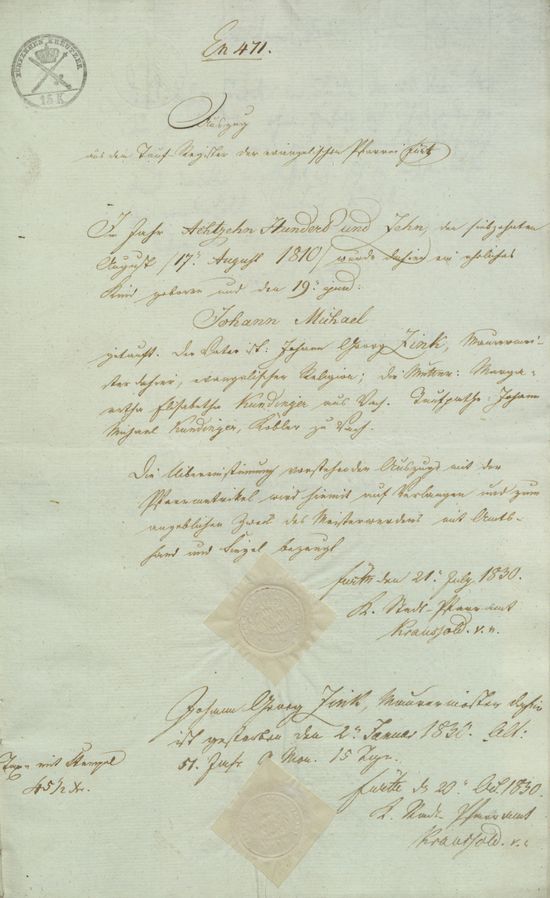 FUNFZEHN KREUTZER
15 K
En 471.
Auszug
aus dem Tauf-Register der evangelischen Pfarrei Fürth
Im Jahr Achtzehn Hundert und Zehn, den siebzehnten
August /17. August 1810/ wurde dahier ein eheliches
Kind geboren und den 19. ejusd:
Johann Michael
getauft. Der Vater ist: Johann Georg Zink, Maurermei-
ster dahier, evangelischer Religion; die Mutter: Marga-
retha Elisabetha Kundinger aus Vach. Taufpathe: Johann
Michael Kundinger, Köbler zu Vach.
Die Uebereinstimmung vorstehenden Auszugs mit der
Pfarrmatrikel wird hiemit auf Verlangen und zum
angeblichen Zweck des Meisterwerdens mit Amts-
hand und Siegel bezeugt
Fürth den 21. July 1830.
K. Stadt-Pfarramt
Kraussold. v. n.
Johann Georg Zink, Maurermeister dahier
ist gestorben den 2. Januar 1830. Alt:
51. Jahr Mon. 15 Tage.
Taxe mit Stempel
45 1/2 Xr.
Fürth d. 20. Oct. 1830.
K. Stadt-Pfarramt
Kraussold. v.